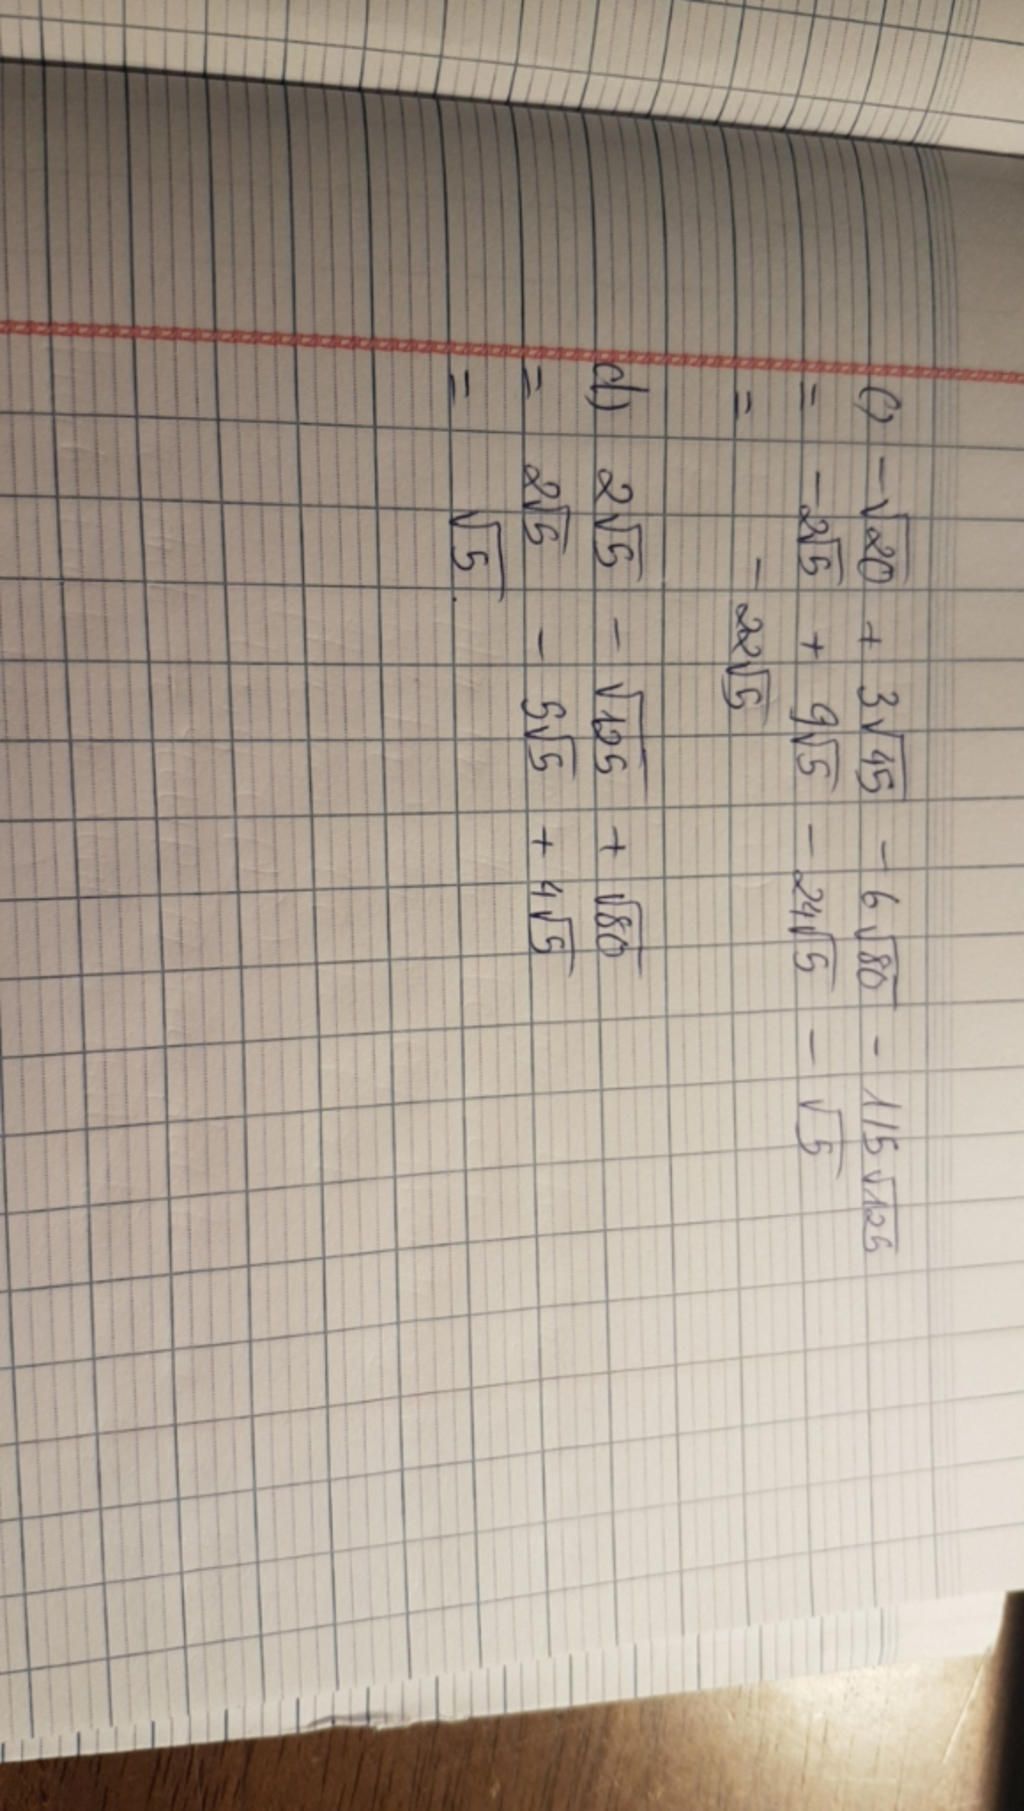 c) -√20 + 3√45 - 6√80 - 1/5√125
= -2√5 + 9√5 - 24√5 - √5
= -22√5
d) 2√5 - √125 + √80
= 2√5 - 5√5 + 4√5
= √5.